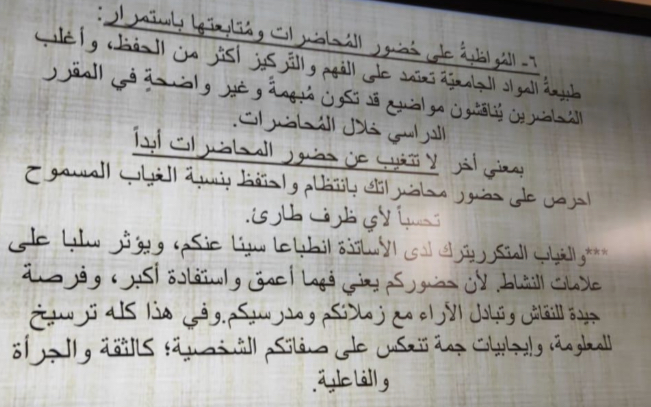 ٦- المُواظبةُ على حُضور المُحاضرات ومُتابعتها باستمرار:
طبيعةُ المواد الجامعيّة تعتمد على الفهم والتّركيز أكثر من الحفظ، وأغلب
المُحاضرين يُناقشون مواضيع قد تكون مُبهمةً وغير واضحةٍ في المقرر
الدراسي خلال المُحاضرات.
بمعني أخر لا تتغيب عن حضور المحاضرات أبداً
احرص على حضور محاضراتك بانتظام واحتفظ بنسبة الغياب المسموح
تحسباً لأي ظرف طارئ.
***والغياب المتكرريترك لدى الأساتذة انطباعا سيئا عنكم، ويؤثر سلبا على
علامات النشاط. لأن حضوركم يعني فهما أعمق واستفادة أكبر، وفرصة
جيدة للنقاش وتبادل الآراء مع زملائكم ومدرسيكم.وفي هذا كله ترسيخ
للمعلومة، وإيجابيات جمة تنعكس على صفاتكم الشخصية؛ كالثقة والجرأة
والفاعلية.